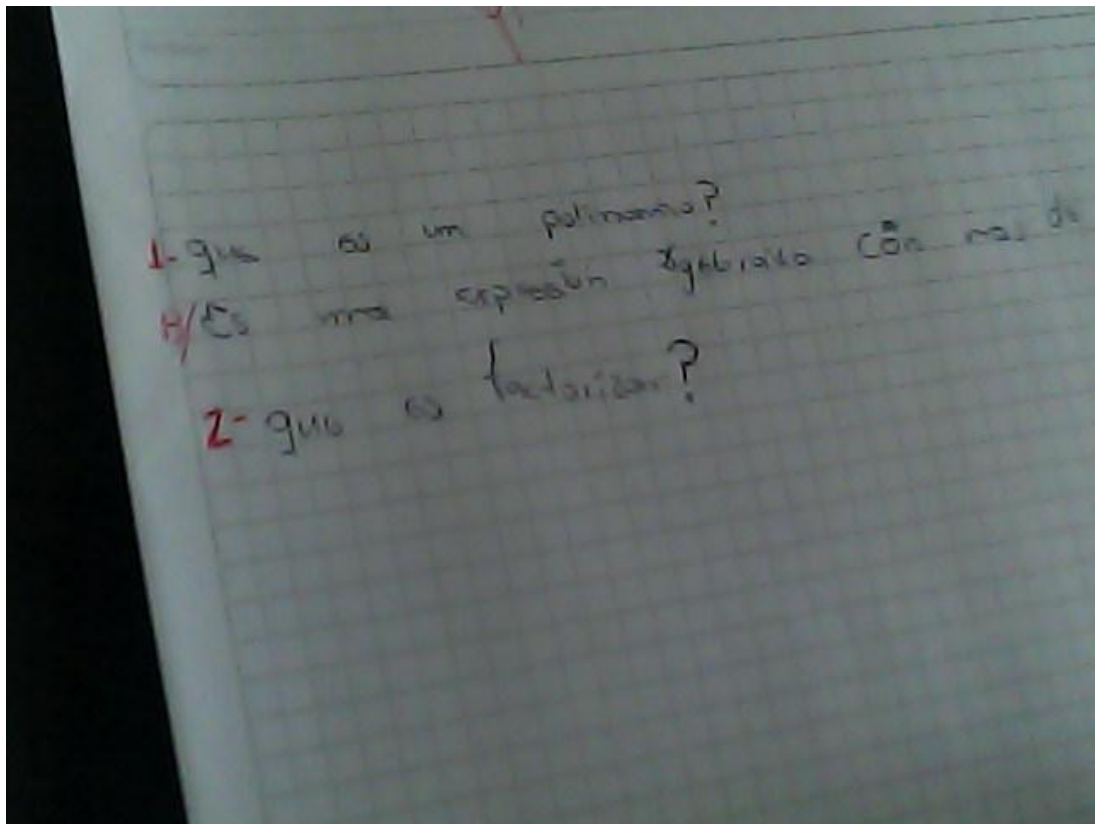 1- que es un polinomio?
R/ Es una expresión algebraica con mas de
2- que es factorizar?